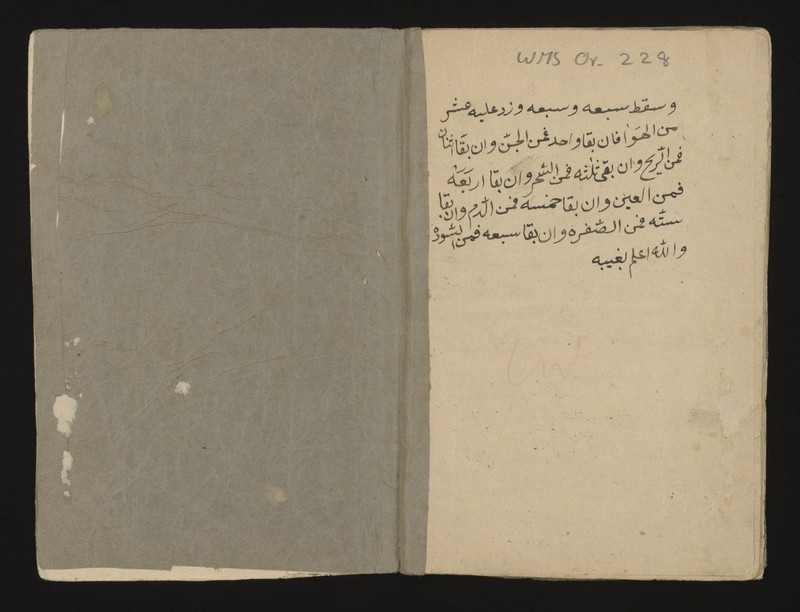 WMS Or. 228
وسقط سبعه وسبعه وزد عليه عشر
من الهوا فان بقا واحد فمن الجن وان بقا اثنان
فمن الريح وان بقى ثلثه فمن السحر وان بقا اربعه
فمن العين وان بقا خمسه فمن الدم وان بقا
سته فمن الصفره وان بقا سبعه فمن السوده
والله اعلم بغيبه